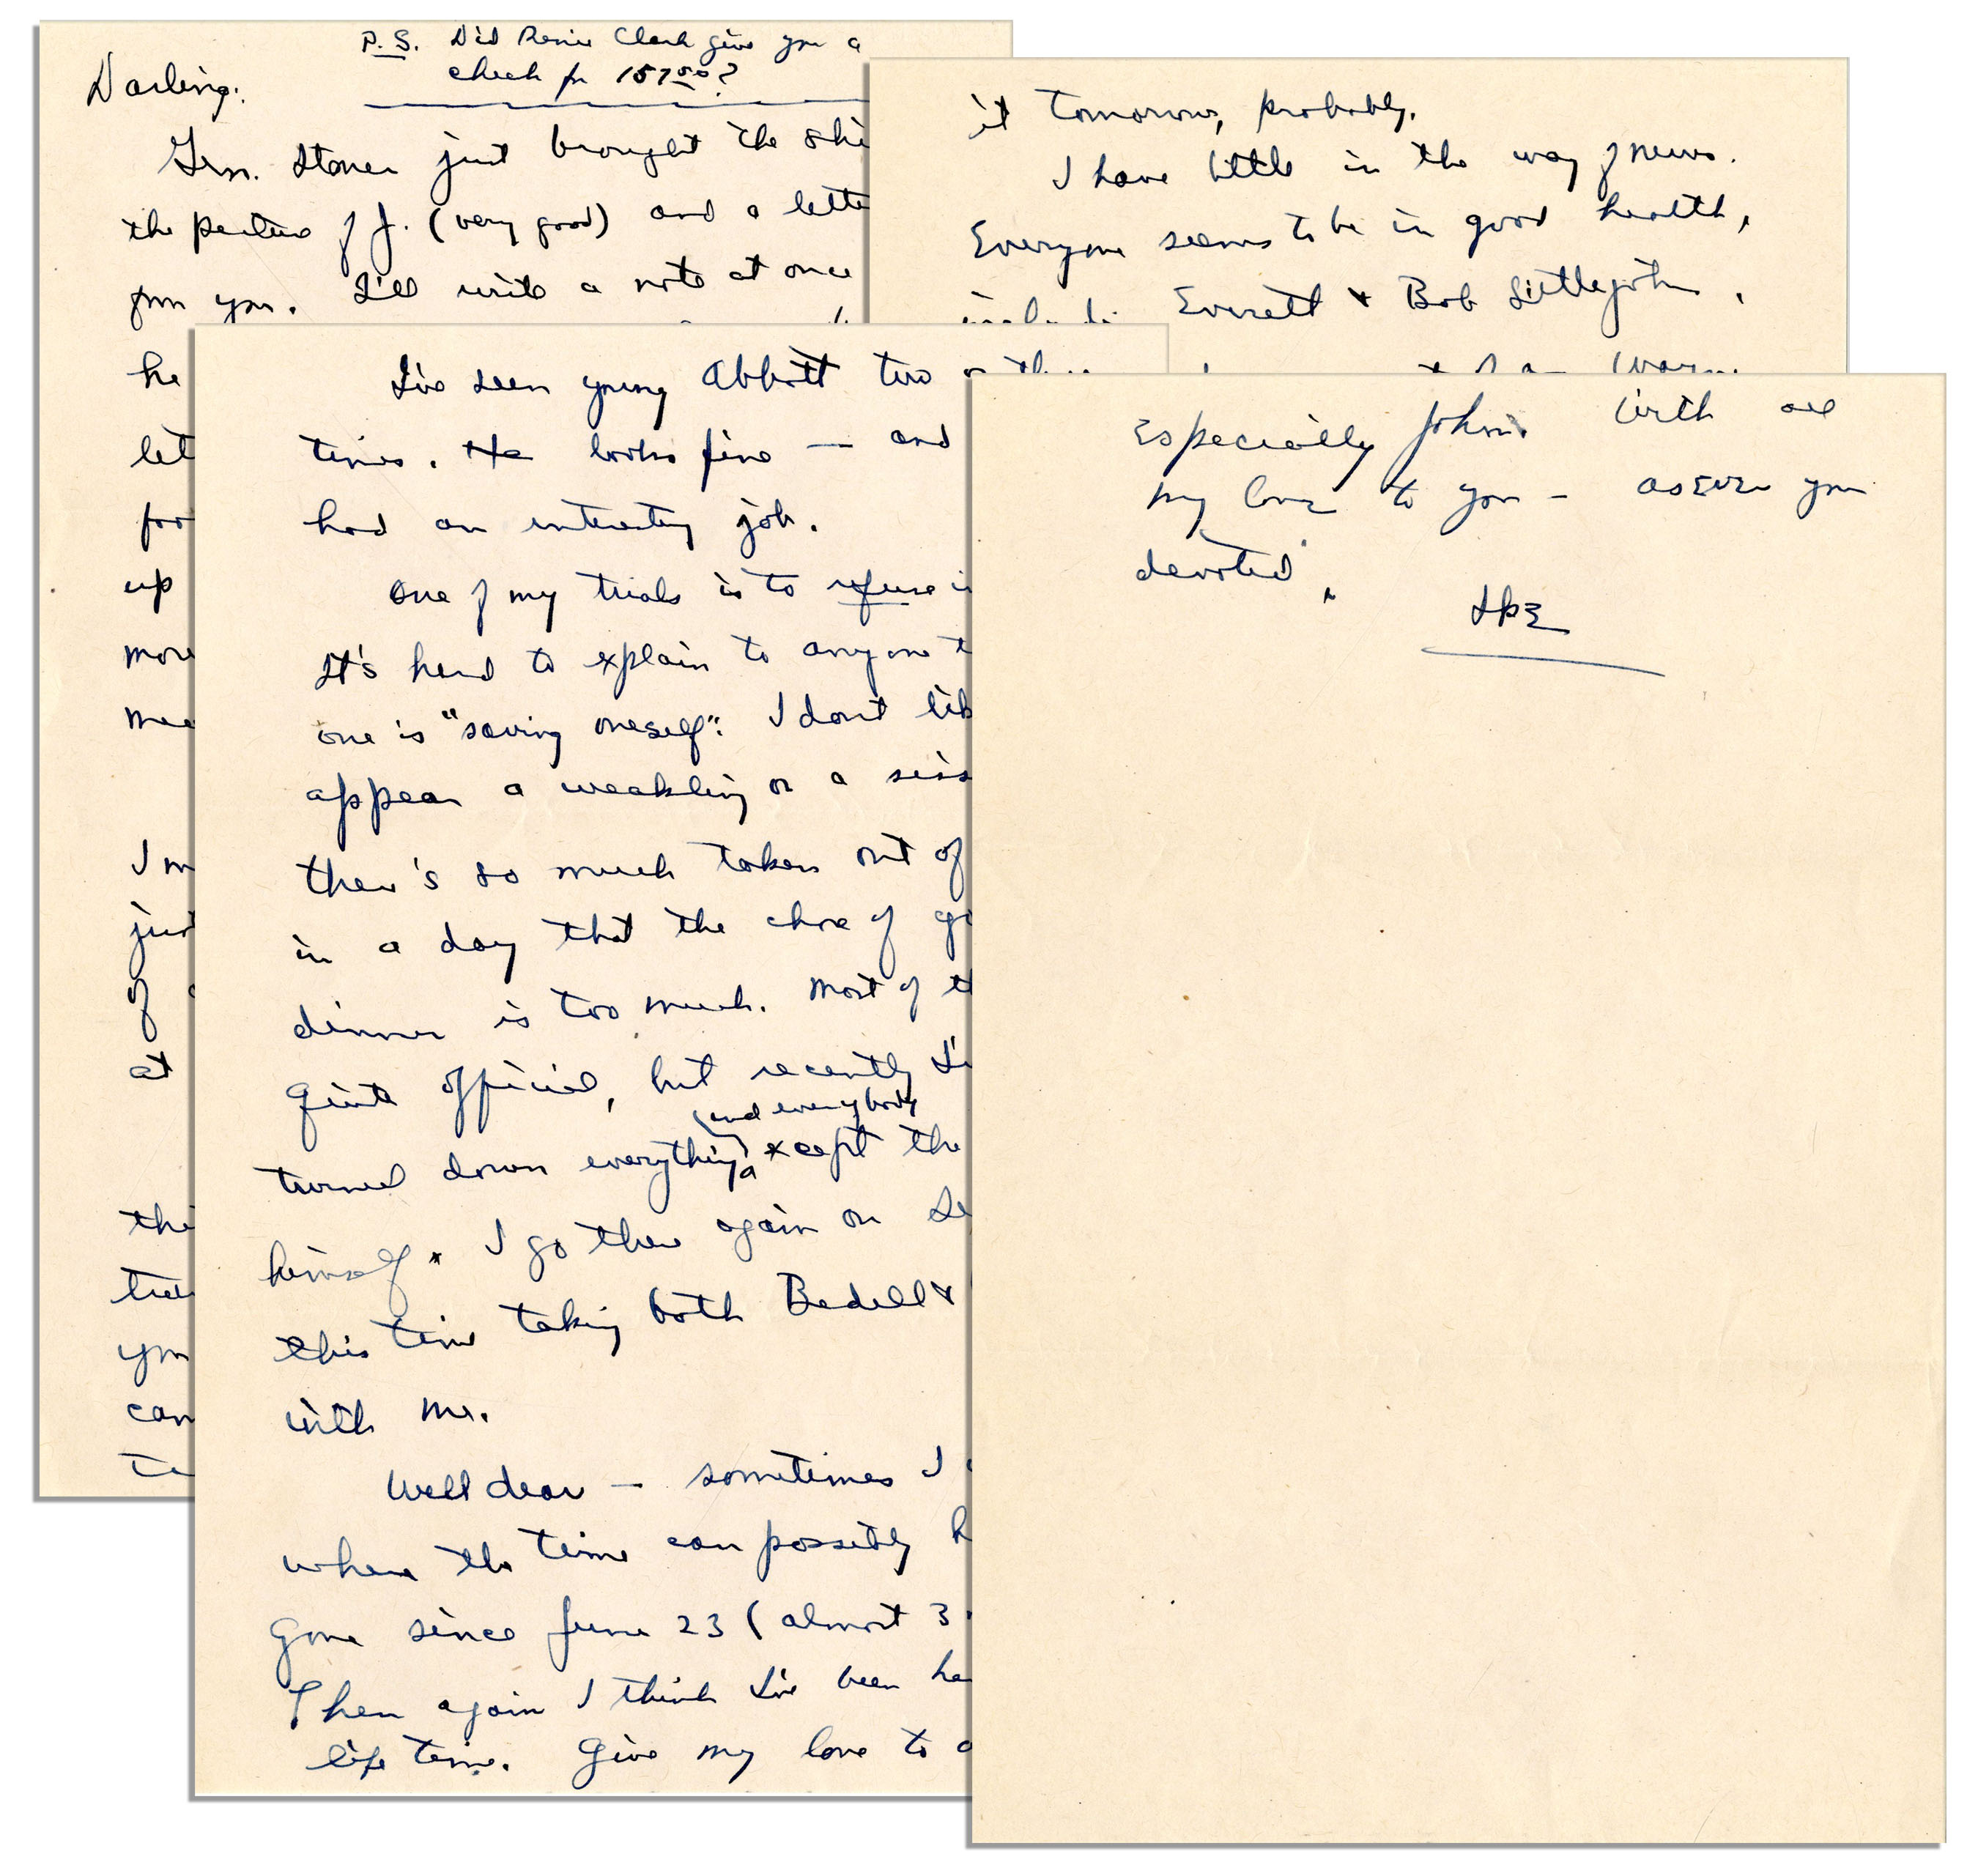 P.S. Did Renie Clark give you a
check for 157.50?
Darling:
Gen. Stoner just brought the
the picture of J. (very good) and a
from you. I'll write a note at once
he
let
up
more
I
of
at
you
it tomorrow, probably.
I have little in the way of news.
Everyone seems to be in good health,
Everett & Bob Littlejohn.
I've seen young Abbott two
times. He looks fine — and
had an interesting job.
One of my trials is to refuse
It's hard to explain to anyone
one is "saving oneself". I don't
appear a weakling or a
there's so much taken out of
in a day that the chore of
dinner is too much. Most of
quite official, but recently
(and everybody)
turned down everything except the
himself. I go there again on
this time taking both Bedell &
with me.
Well dear — sometimes I
where the time can possibly
gone since June 23 (almost 3
Then again I think I've been
life time. Give my love to
Especially Johnnie. With all
my love to you — as ever your
devoted,
Ike